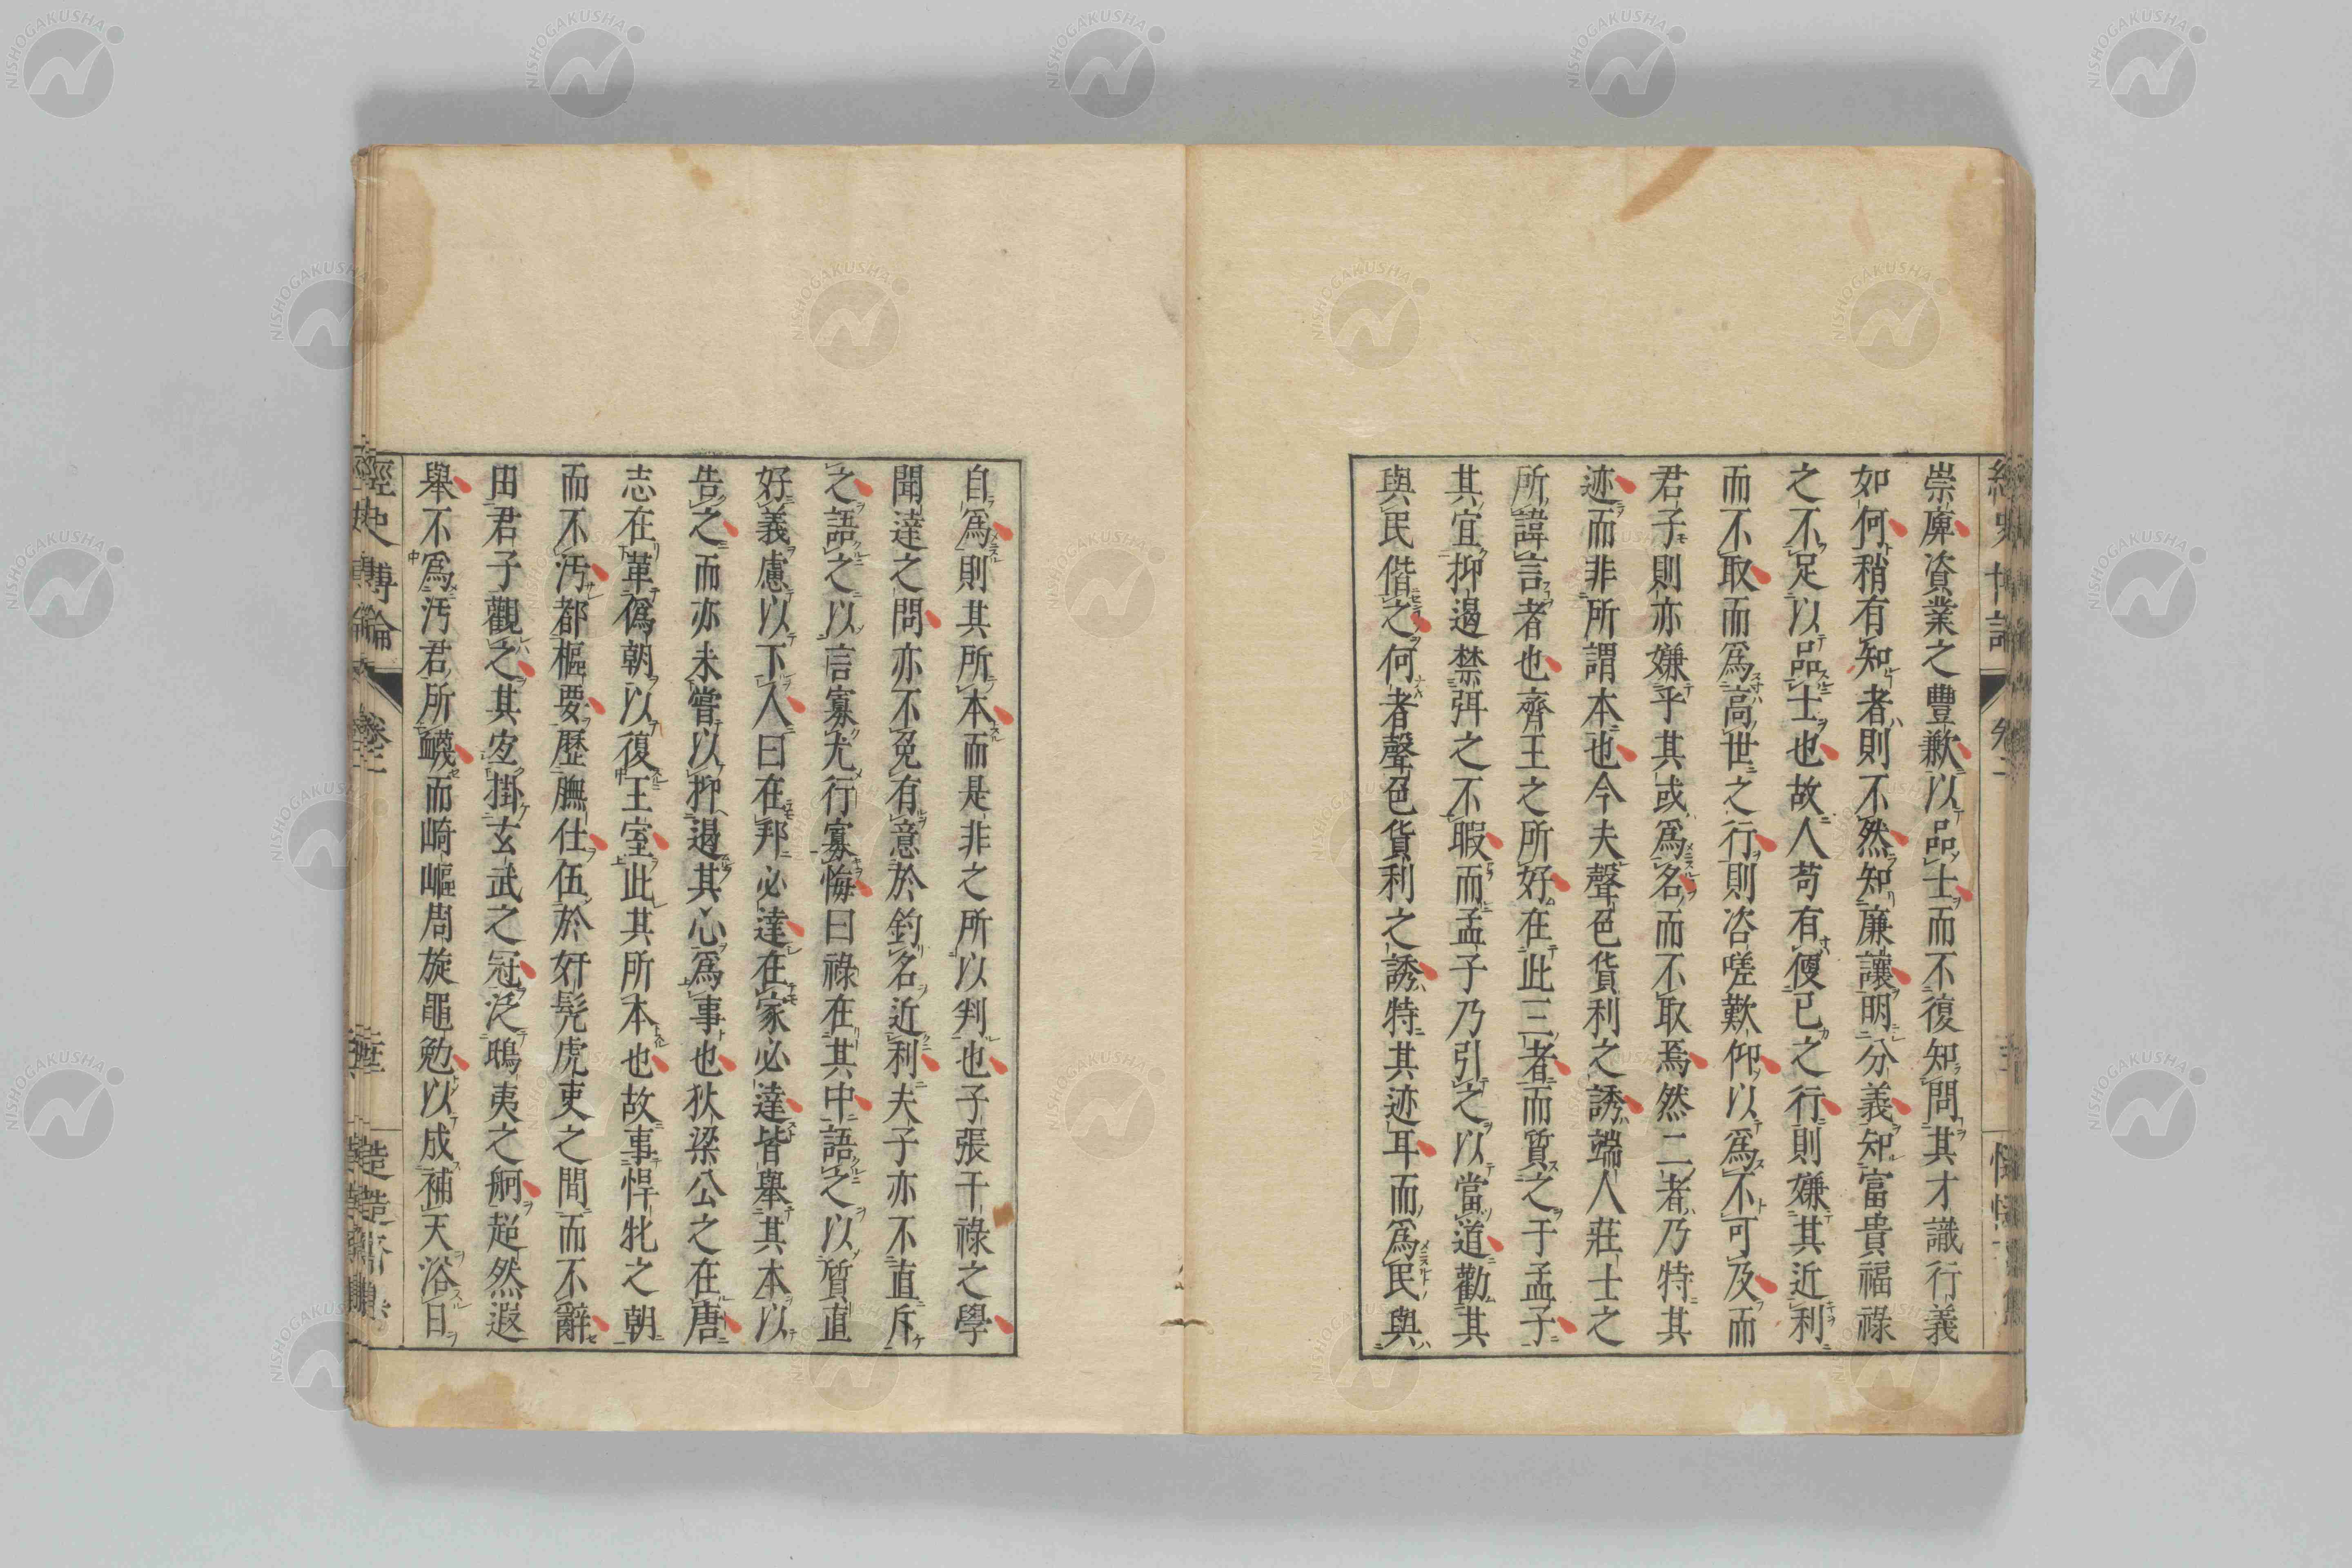 崇庳資業之豐歉以品士而不復知問其才識行義
如何稍有知者則不然知廉讓明分義知富貴福祿
之不足以品士也故人苟有便已之行則嫌其近利
而不取而爲高世之行則咨嗟歎仰以爲不可及而
君子則亦嫌乎其或爲名而不取焉然二者乃特其
迹而非所謂本也今夫聲色貨利之誘端人莊士之
所諱言者也齊王之所好在此三者而質之于孟子
其宜抑遏禁弭之不暇而孟子乃引之以當道勸其
與民偕之何者聲色貨利之誘特其迹耳而爲民與
自爲則其所本而是非之所以判也子張干祿之學
聞達之問亦不免有意於釣名近利夫子亦不直斥
之語之以言寡尤行寡悔曰祿在其中語之以質直
好義慮以下人曰在邦必達在家必達皆舉其本以
告之而亦未嘗以抑遏其心爲事也狄梁公之在唐
志在革僞朝以復王室此其所本也故事悍牝之朝
而不汚都樞要歷膴仕伍於奸髡虎吏之間而不辭
田君子觀之其宜掛玄武之冠泛鴟夷之舸超然遐
舉不爲汚君所衊而崎嶇周旋黽勉以成補天浴日
經史博論
卷二